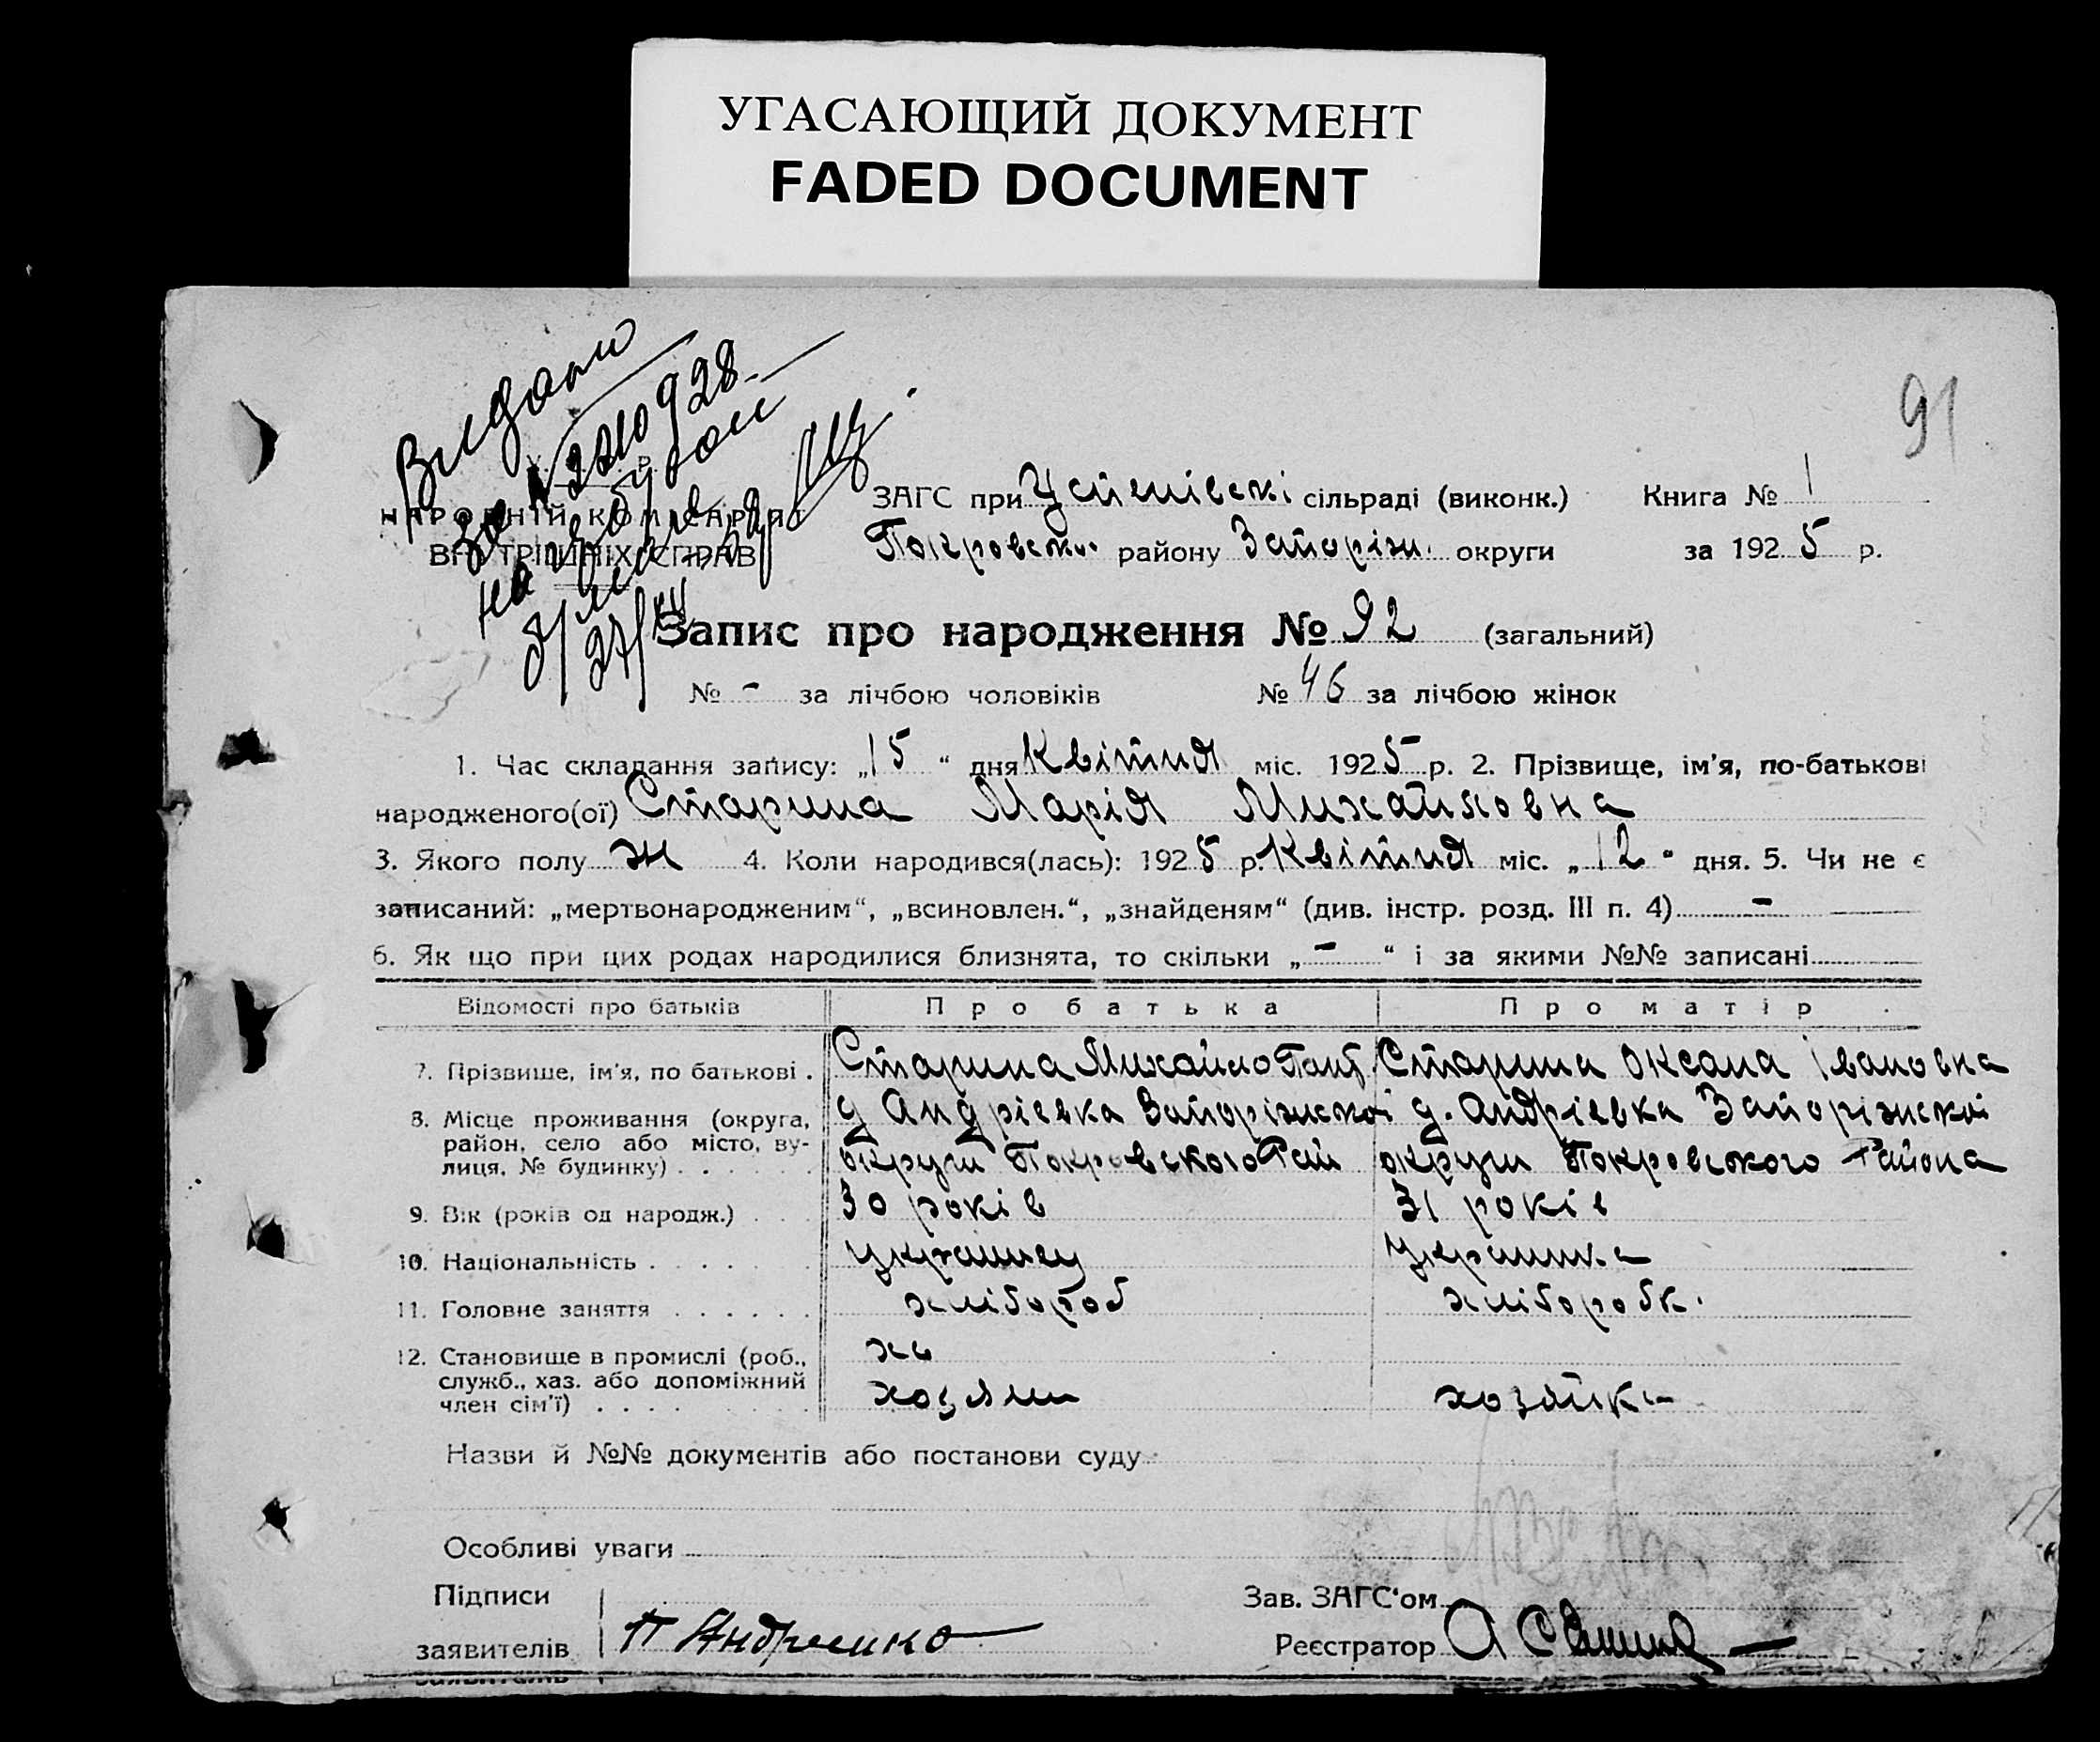 УГАСАЮЩИЙ ДОКУМЕНТ
FADED DOCUMENT
91
Видано
928
НАРОДНІЙ КОМІСАРІАТ
ВНУТРІШНІХ СПРАВ
ЗАГС при Успенівскі сільраді (виконк.) Книга № 1
Покровськ. району Запоріжж. округи за 1925 р.
Запис про народження № 92 (загальний)
№ - за лічбою чоловіків № 46 за лічбою жінок
1. Час складання запису: „15“ дня Квітня міс. 1925 р. 2. Прізвище, ім'я, по-батькові
народженого(ої) Старина Марія Михайловна
3. Якого полу ж 4. Коли народився(лась): 1925 р. Квітня міс. „12“ дня. 5. Чи не є
записаний: „мертвонародженим“, „всиновлен.“, „знайденям“ (див. інстр. розд. III п. 4) -
6. Як що при цих родах народилися близнята, то скільки „-“ і за якими №№ записані
Відомості про батьків Про батька Про матір
7. Прізвише, ім'я, по батькові . Старина Михайло Старина Оксана Івановна
8. Місце проживання (округа, д Андрієвка Запоріжскої д. Андрієвка Запоріжскої
район, село або місто, ву-
лиця, № будинку) . . . . . . округи Покровского Рай округи Покровского Района
9. Вік (років од народж.) . . . 30 років 31 років
10. Національність . . . . . . украинец украинка
11. Головне заняття . . . . . . хлібороб хлиборобк.
12. Становище в промислі (роб.,
служб., хаз. або допоміжний
член сім'ї) . . . . хозяин хозяйка
Назви й №№ документів або постанови суду
Особливі уваги
Підписи Зав. ЗАГС'ом
заявителів П Андреенко Реєстратор А